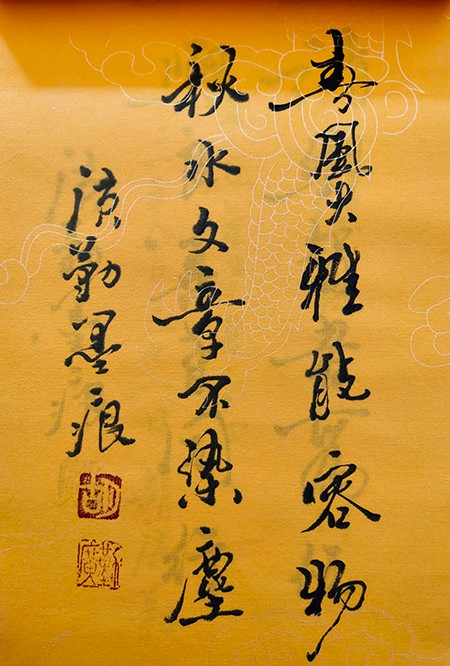 春風大雅能容物
秋水文章不染塵
廣勤墨痕
廣勤